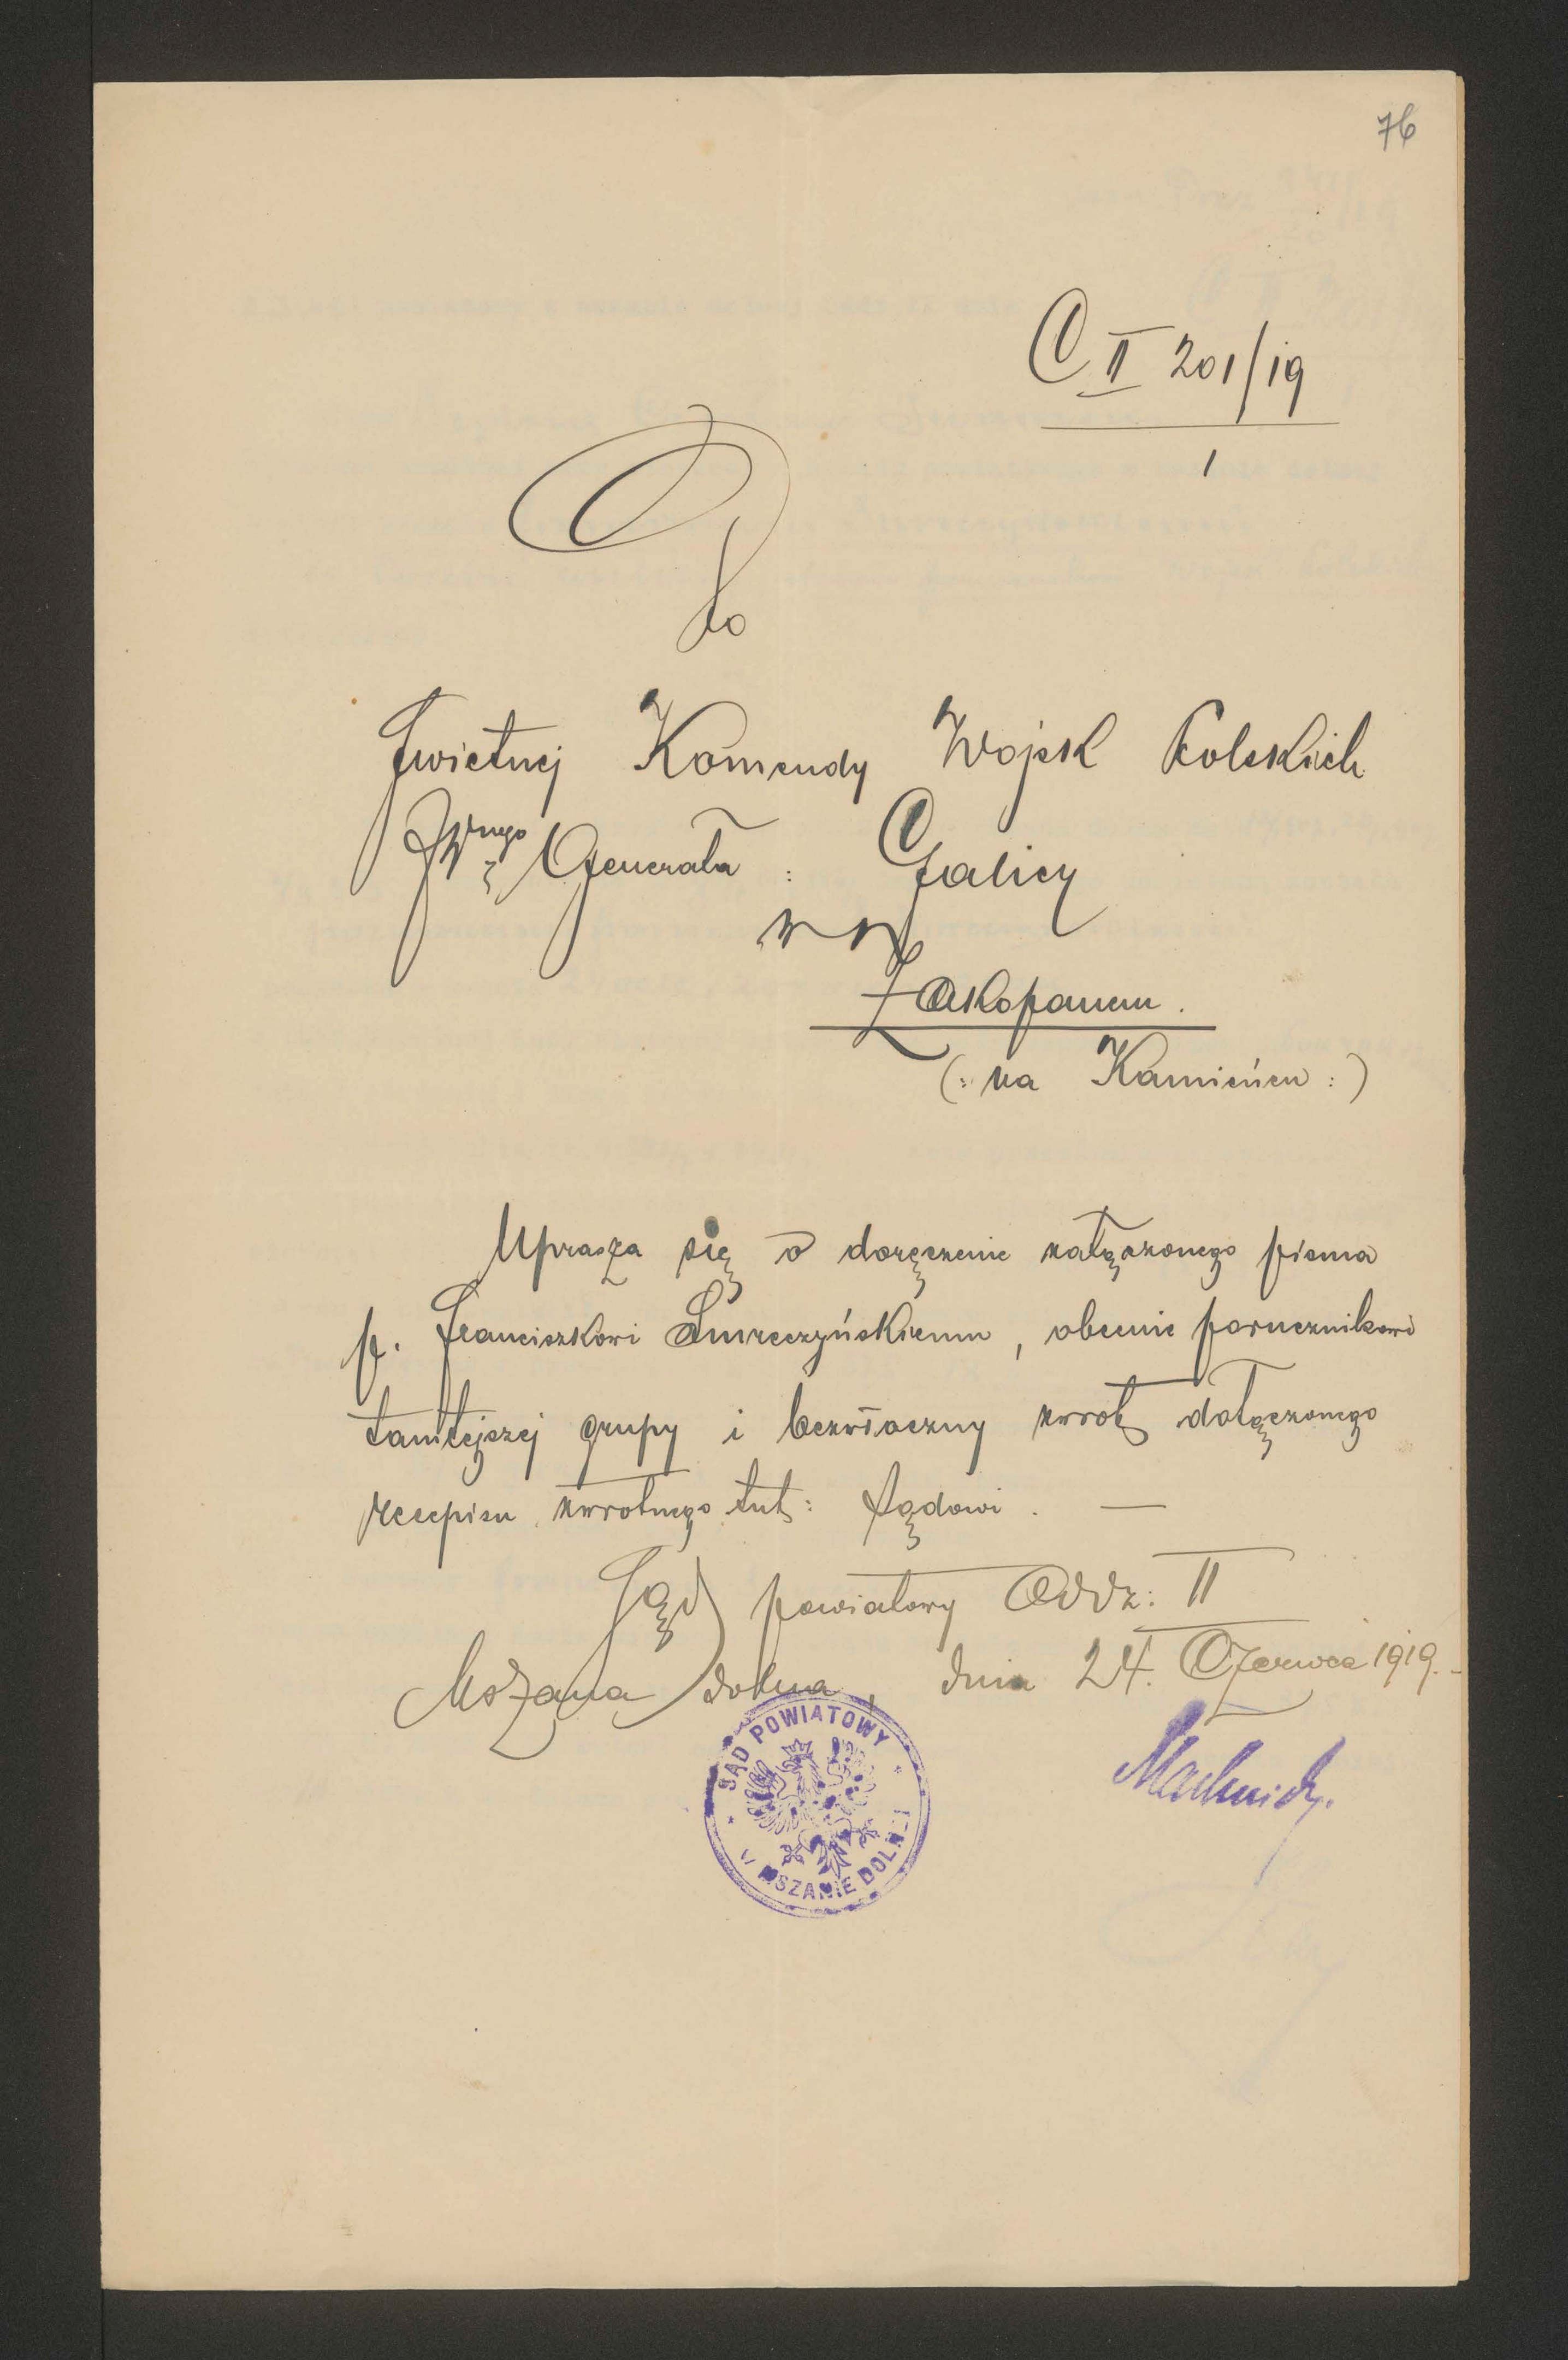 76
C II 201/19
1
Do
Świetnej Komendy Wojsk Polskich
JWnego Generała : Galicy
w
Zakopanem.
(: na Kamieńcu :)
Uprasza się o doręczenie załączonego pisma
p. Franciszkowi Smreczyńskiemu, obecnie porucznikowi
tamtejszej grupy i bezwłoczny zwrot dołączonego
recepisu zwrotnego tut: Sądowi. —
Sąd powiatowy Oddz: II
Mszana dolna, dnia 24. Czerwca 1919.
SĄD POWIATOWY
W MSZANIE DOLNEJ